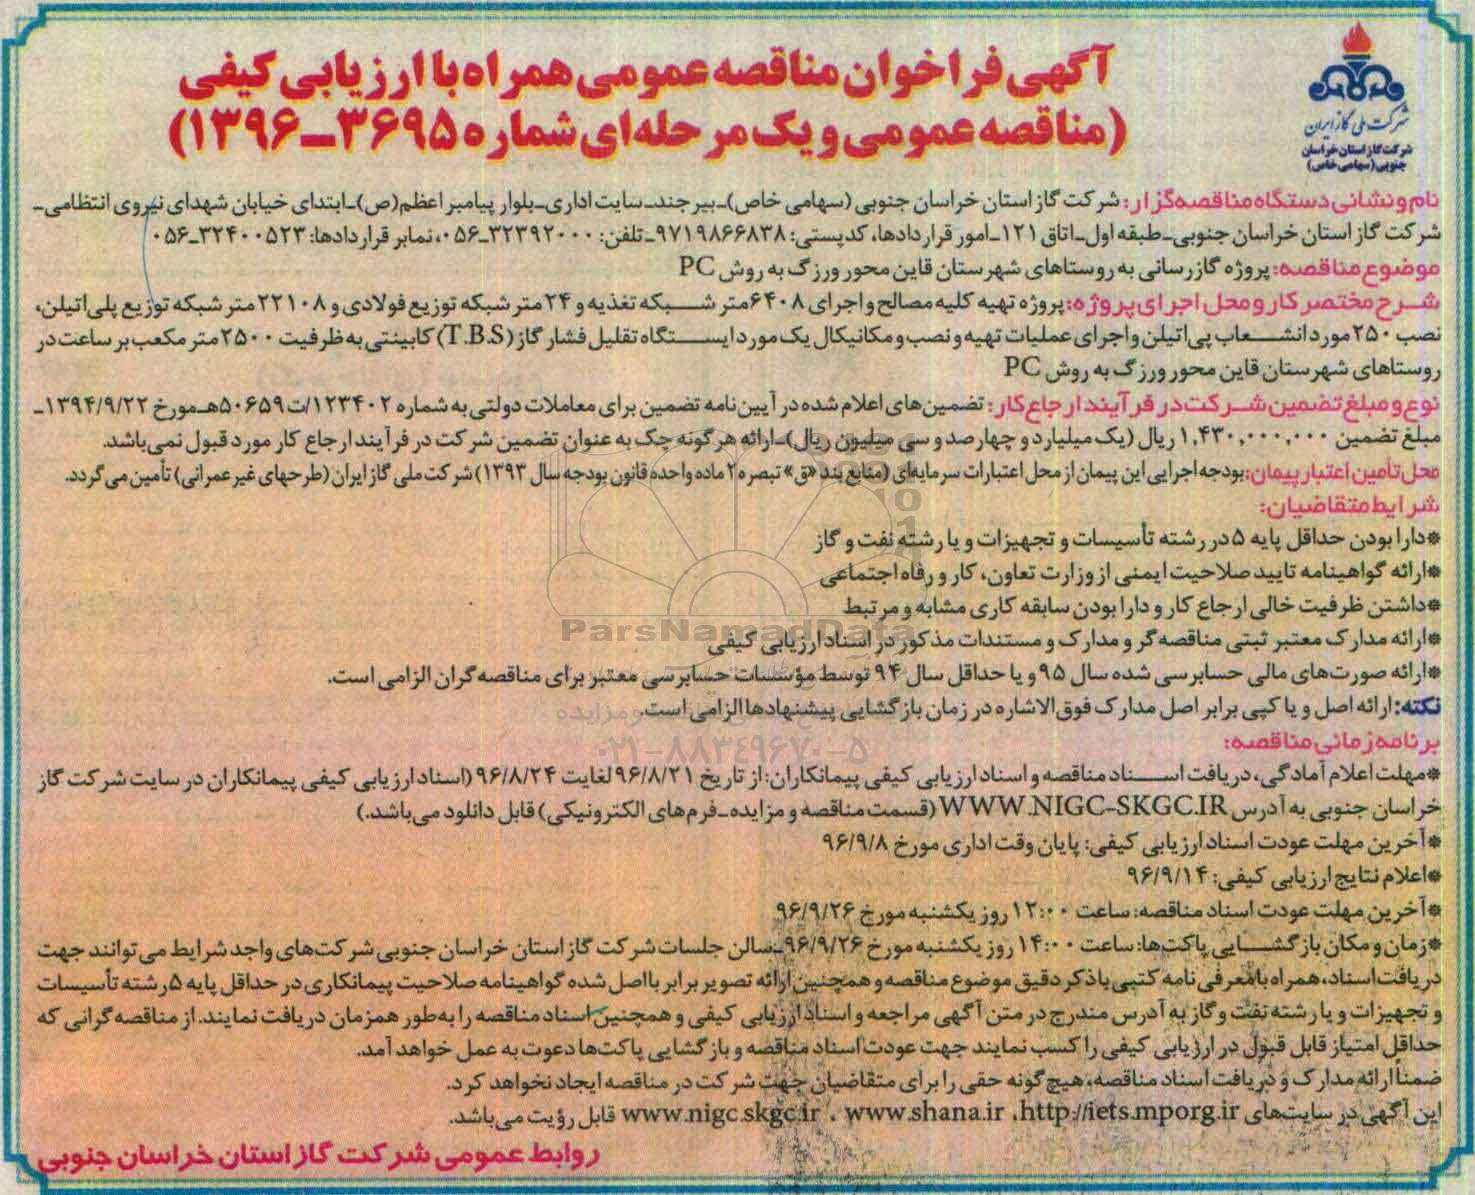 آگهی فراخوان مناقصه عمومی همراه با ارزیابی کیفی
(مناقصه عمومی و یک مرحله‌ای شماره ۳۶۹۵-۱۳۹۶)
شرکت ملی گاز ایران
شرکت گاز استان خراسان
جنوبی (سهامی خاص)
نام و نشانی دستگاه مناقصه‌گزار: شرکت گاز استان خراسان جنوبی (سهامی خاص)-بیرجند-سایت اداری-بلوار پیامبر اعظم(ص)-ابتدای خیابان شهدای نیروی انتظامی-
شرکت گاز استان خراسان جنوبی-طبقه اول-اتاق ۱۲۱-امور قراردادها، کدپستی: ۹۷۱۹۸۶۶۸۳۸-تلفن: ۳۲۳۹۲۰۰۰-۰۵۶، نمابر قراردادها: ۳۲۴۰۰۵۲۳-۰۵۶
موضوع مناقصه: پروژه گازرسانی به روستاهای شهرستان قاین محور ورزگ به روش PC
شرح مختصر کار و محل اجرای پروژه: پروژه تهیه کلیه مصالح و اجرای ۶۴۰۸متر شبکه تغذیه و ۲۴ متر شبکه توزیع فولادی و ۲۲۱۰۸ متر شبکه توزیع پلی‌اتیلن،
نصب ۲۵۰ مورد انشعاب پی‌اتیلن و اجرای عملیات تهیه و نصب و مکانیکال یک مورد ایستگاه تقلیل فشار گاز (T.B.S) کابینتی به ظرفیت ۲۵۰۰ متر مکعب بر ساعت در
روستاهای شهرستان قاین محور ورزگ به روش PC
نوع و مبلغ تضمین شرکت در فرآیند ارجاع کار: تضمین‌های اعلام شده در آیین‌نامه تضمین برای معاملات دولتی به شماره ۱۲۳۴۰۲/ت۵۰۶۵۹هـ مورخ ۱۳۹۴/۹/۲۲-
مبلغ تضمین ۱,۴۳۰,۰۰۰,۰۰۰ ریال (یک میلیارد و چهارصد و سی میلیون ریال)-ارائه هرگونه چک به عنوان تضمین شرکت در فرآیند ارجاع کار مورد قبول نمی‌باشد.
محل تأمین اعتبار پیمان: بودجه اجرایی این پیمان از محل اعتبارات سرمایه‌ای (منابع بند «ق» تبصره ۲ ماده واحده قانون بودجه سال ۱۳۹۳) شرکت ملی گاز ایران (طرحهای غیر عمرانی) تأمین می‌گردد.
شرایط متقاضیان:
*دارا بودن حداقل پایه ۵ در رشته تأسیسات و تجهیزات و یا رشته نفت و گاز
*ارائه گواهینامه تایید صلاحیت ایمنی از وزارت تعاون، کار و رفاه اجتماعی
*داشتن ظرفیت خالی ارجاع کار و دارا بودن سابقه کاری مشابه و مرتبط
ParsNamadData
*ارائه مدارک معتبر ثبتی مناقصه‌گر و مدارک و مستندات مذکور در اسناد ارزیابی کیفی
*ارائه صورت‌های مالی حسابرسی شده سال ۹۵ و یا حداقل سال ۹۴ توسط مؤسسات حسابرسی معتبر برای مناقصه‌گران الزامی است.
نکته: ارائه اصل و یا کپی برابر اصل مدارک فوق‌الاشاره در زمان بازگشایی پیشنهادها الزامی است.
برنامه زمانی مناقصه:
۰۲۱-۸۸۳۴۹۶۷۰-۵
*مهلت اعلام آمادگی، دریافت اسناد مناقصه و اسناد ارزیابی کیفی پیمانکاران: از تاریخ ۹۶/۸/۲۱ لغایت ۹۶/۸/۲۴ (اسناد ارزیابی کیفی پیمانکاران در سایت شرکت گاز
خراسان جنوبی به آدرس WWW.NIGC-SKGC.IR (قسمت مناقصه و مزایده-فرم‌های الکترونیکی) قابل دانلود می‌باشد.)
*آخرین مهلت عودت اسناد ارزیابی کیفی: پایان وقت اداری مورخ ۹۶/۹/۸
*اعلام نتایج ارزیابی کیفی: ۹۶/۹/۱۴
*آخرین مهلت عودت اسناد مناقصه: ساعت ۱۲:۰۰ روز یکشنبه مورخ ۹۶/۹/۲۶
*زمان و مکان بازگشایی پاکت‌ها: ساعت ۱۴:۰۰ روز یکشنبه مورخ ۹۶/۹/۲۶-سالن جلسات شرکت گاز استان خراسان جنوبی شرکت‌های واجد شرایط می‌توانند جهت
دریافت اسناد، همراه با معرفی‌نامه کتبی با ذکر دقیق موضوع مناقصه و همچنین ارائه تصویر برابر با اصل شده گواهینامه صلاحیت پیمانکاری در حداقل پایه ۵ رشته تأسیسات
و تجهیزات و یا رشته نفت و گاز به آدرس مندرج در متن آگهی مراجعه و اسناد ارزیابی کیفی و همچنین اسناد مناقصه را به‌طور همزمان دریافت نمایند. از مناقصه‌گرانی که
حداقل امتیاز قابل قبول در ارزیابی کیفی را کسب نمایند جهت عودت اسناد مناقصه و بازگشایی پاکت‌ها دعوت به عمل خواهد آمد.
ضمناً ارائه مدارک و دریافت اسناد مناقصه، هیچ‌گونه حقی را برای متقاضیان جهت شرکت در مناقصه ایجاد نخواهد کرد.
این آگهی در سایت‌های http://iets.mporg.ir، www.shana.ir، www.nigc.skgc.ir قابل رؤیت می‌باشد.
روابط عمومی شرکت گاز استان خراسان جنوبی